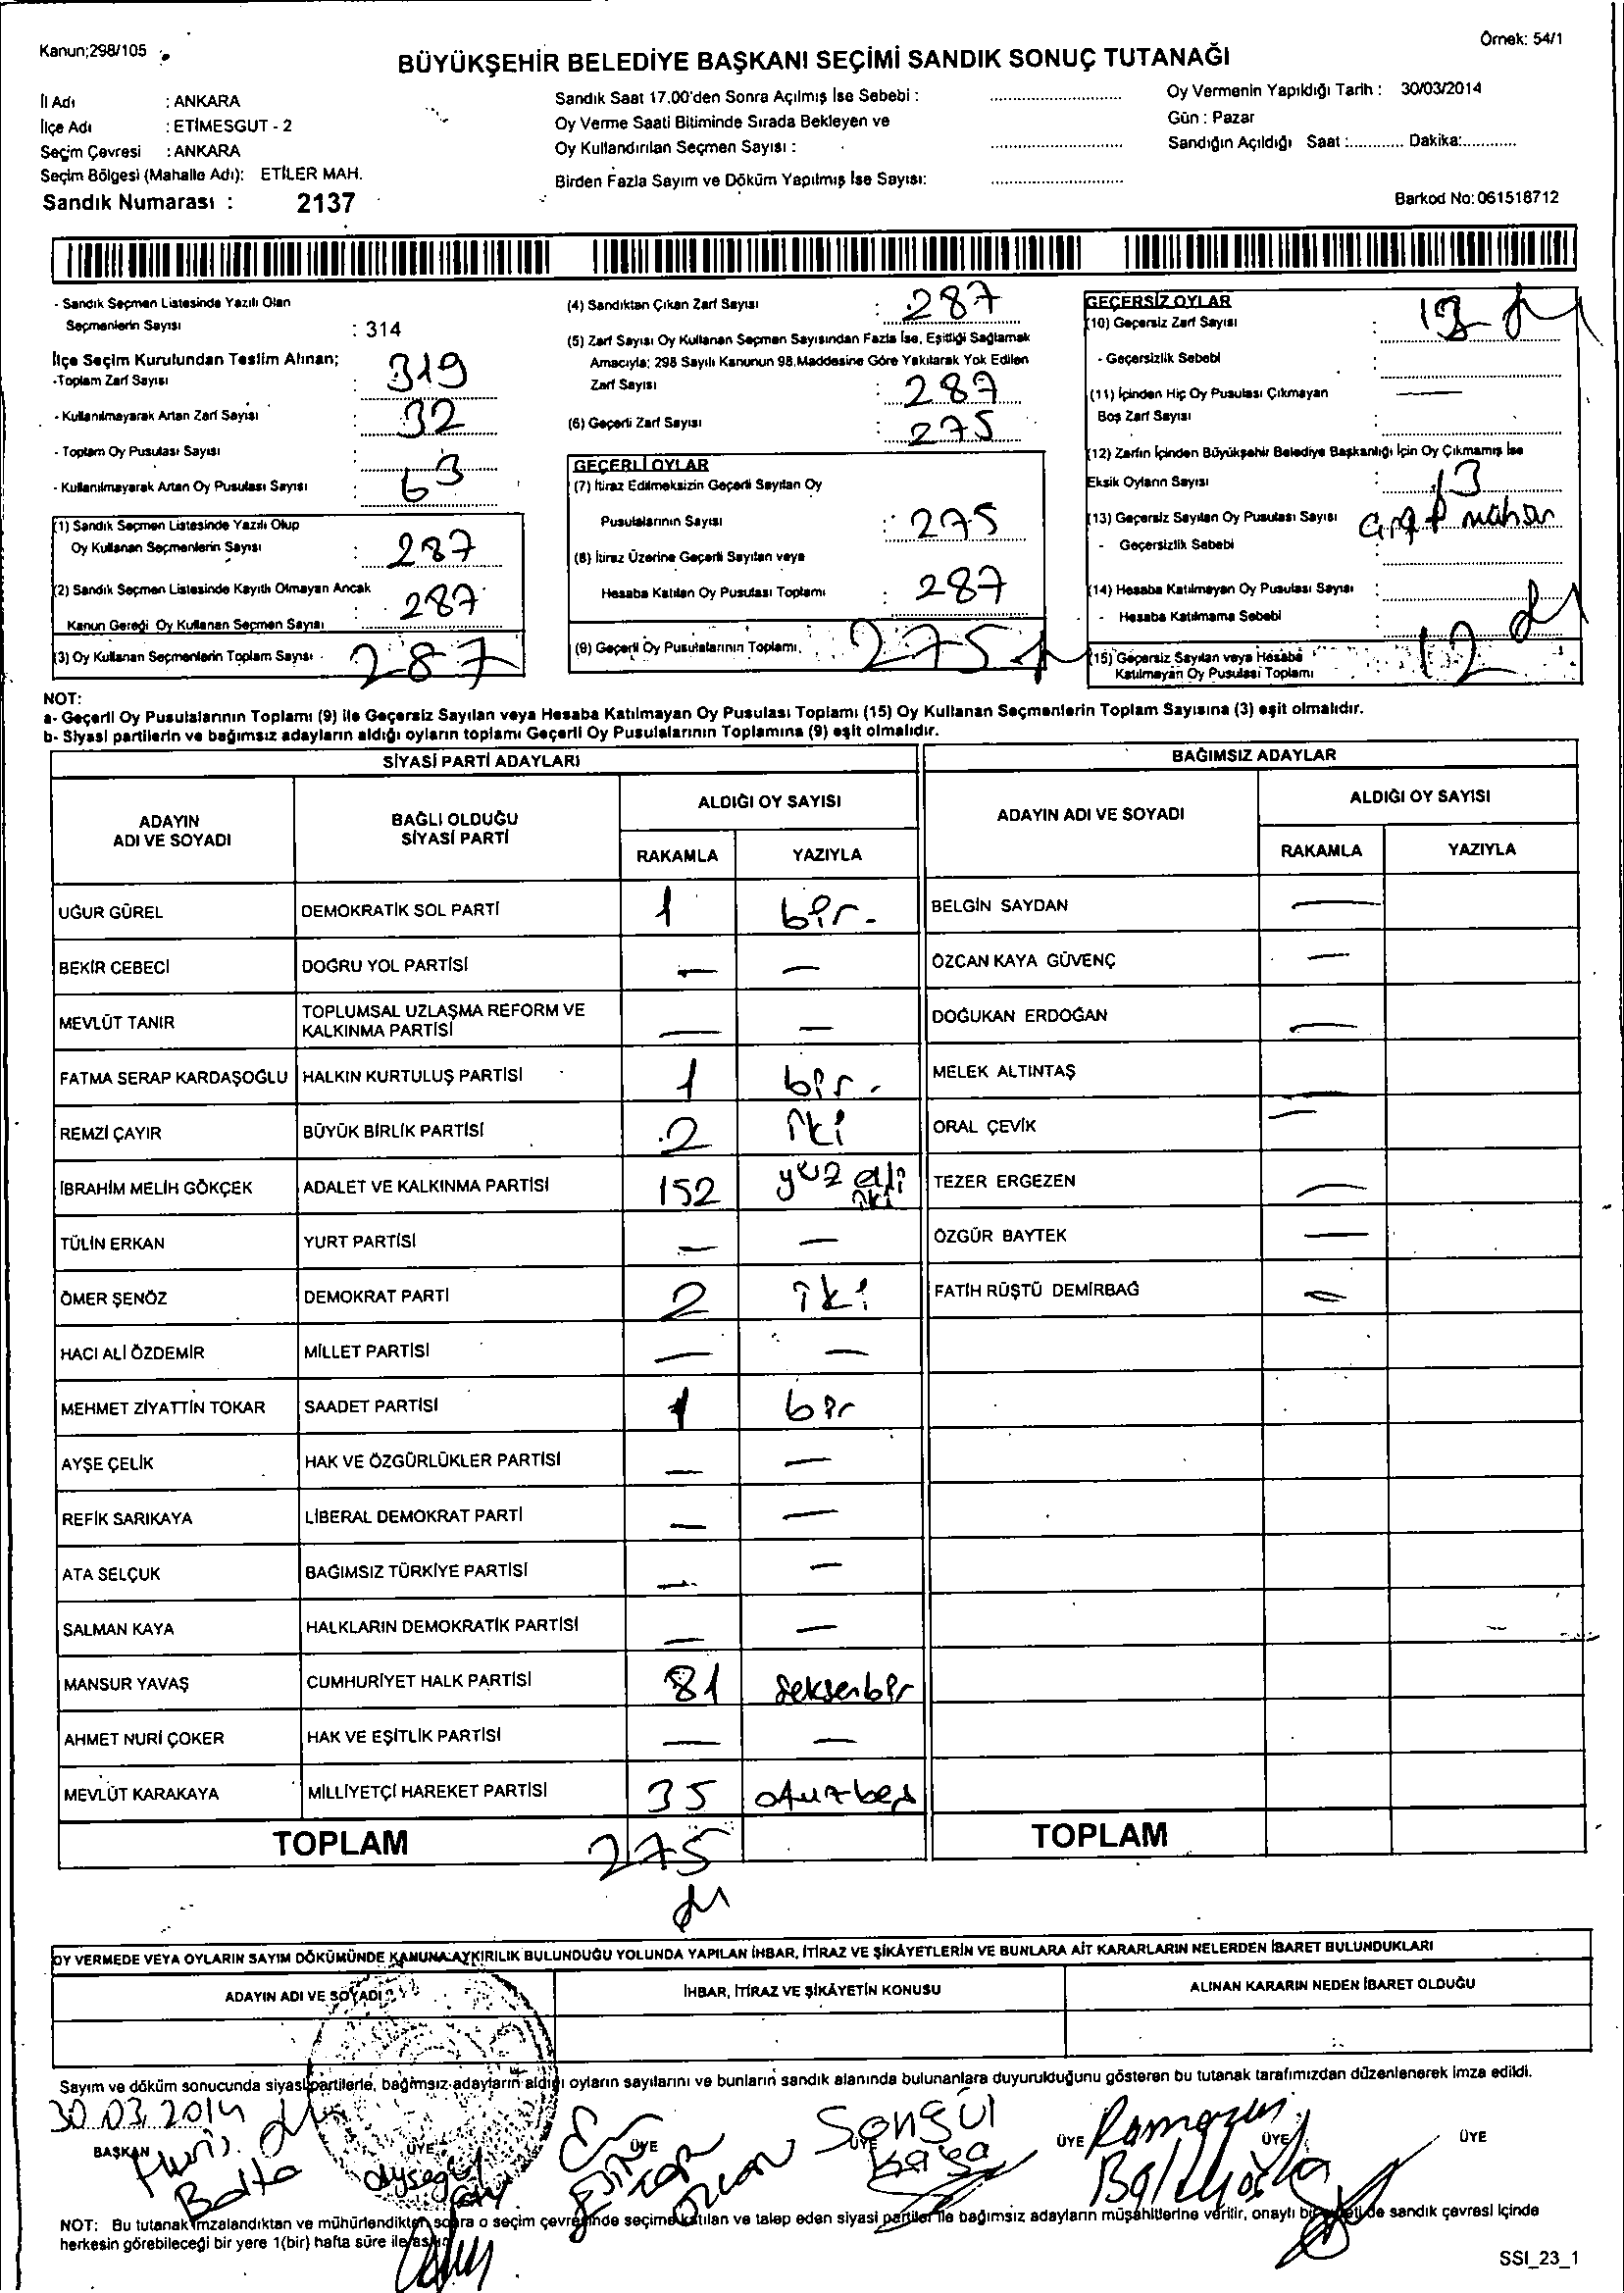 Kanun;298/105
Örnek: 54/1
BÜYÜKŞEHİR BELEDİYE BAŞKANI SEÇİMİ SANDIK SONUÇ TUTANAĞI
İl Adı : ANKARA
İlçe Adı : ETİMESGUT - 2
Seçim Çevresi : ANKARA
Seçim Bölgesi (Mahalle Adı): ETİLER MAH.
Sandık Numarası : 2137
Sandık Saat 17.00'den Sonra Açılmış İse Sebebi :
Oy Verme Saati Bitiminde Sırada Bekleyen ve
Oy Kullandırılan Seçmen Sayısı :
Birden Fazla Sayım ve Döküm Yapılmış İse Sayısı:
Oy Vermenin Yapıldığı Tarih : 30/03/2014
Gün : Pazar
Sandığın Açıldığı Saat :............ Dakika:............
Barkod No: 061518712
- Sandık Seçmen Listesinde Yazılı Olan
Seçmenlerin Sayısı : 314
İlçe Seçim Kurulundan Teslim Alınan;
-Toplam Zarf Sayısı : 319
- Kullanılmayarak Artan Zarf Sayısı : 32
- Toplam Oy Pusulası Sayısı :
- Kullanılmayarak Artan Oy Pusulası Sayısı : 63
(1) Sandık Seçmen Listesinde Yazılı Olup
Oy Kullanan Seçmenlerin Sayısı : 287
(2) Sandık Seçmen Listesinde Kayıtlı Olmayan Ancak
Kanun Gereği Oy Kullanan Seçmen Sayısı : 287
(3) Oy Kullanan Seçmenlerin Toplam Sayısı 287
(4) Sandıktan Çıkan Zarf Sayısı : 287
(5) Zarf Sayısı Oy Kullanan Seçmen Sayısından Fazla İse, Eşitliği Sağlamak
Amacıyla; 298 Sayılı Kanunun 98.Maddesine Göre Yakılarak Yok Edilen
Zarf Sayısı : 287
(6) Geçerli Zarf Sayısı : 275
GEÇERLİ OYLAR
(7) İtiraz Edilmeksizin Geçerli Sayılan Oy
Pusulalarının Sayısı : 275
(8) İtiraz Üzerine Geçerli Sayılan veya
Hesaba Katılan Oy Pusulası Toplamı : 287
(9) Geçerli Oy Pusulalarının Toplamı. : 275
GEÇERSİZ OYLAR
(10) Geçersiz Zarf Sayısı :
- Geçersizlik Sebebi :
(11) İçinden Hiç Oy Pusulası Çıkmayan —
Boş Zarf Sayısı :
(12) Zarfın İçinden Büyükşehir Belediye Başkanlığı İçin Oy Çıkmamış İse
Eksik Oyların Sayısı : 13
(13) Geçersiz Sayılan Oy Pusulası Sayısı
- Geçersizlik Sebebi :
(14) Hesaba Katılmayan Oy Pusulası Sayısı :
- Hesaba Katılmama Sebebi :
(15) Geçersiz Sayılan veya Hesaba
Katılmayan Oy Pusulası Toplamı : 12
NOT:
a- Geçerli Oy Pusulalarının Toplamı (9) ile Geçersiz Sayılan veya Hesaba Katılmayan Oy Pusulası Toplamı (15) Oy Kullanan Seçmenlerin Toplam Sayısına (3) eşit olmalıdır.
b- Siyasi partilerin ve bağımsız adayların aldığı oyların toplamı Geçerli Oy Pusulalarının Toplamına (9) eşit olmalıdır.
SİYASİ PARTİ ADAYLARI
BAĞIMSIZ ADAYLAR
ADAYIN
ADI VE SOYADI
BAĞLI OLDUĞU
SİYASİ PARTİ
ALDIĞI OY SAYISI
RAKAMLA YAZIYLA
ADAYIN ADI VE SOYADI
ALDIĞI OY SAYISI
RAKAMLA YAZIYLA
UĞUR GÜREL DEMOKRATİK SOL PARTİ 1 bir. BELGİN SAYDAN —
BEKİR CEBECİ DOĞRU YOL PARTİSİ — — ÖZCAN KAYA GÜVENÇ —
MEVLÜT TANIR TOPLUMSAL UZLAŞMA REFORM VE
KALKINMA PARTİSİ — — DOĞUKAN ERDOĞAN —
FATMA SERAP KARDAŞOĞLU HALKIN KURTULUŞ PARTİSİ 1 bir. MELEK ALTINTAŞ —
REMZİ ÇAYIR BÜYÜK BİRLİK PARTİSİ 2 iki ORAL ÇEVİK —
İBRAHİM MELİH GÖKÇEK ADALET VE KALKINMA PARTİSİ 152 yüz elli iki TEZER ERGEZEN —
TÜLİN ERKAN YURT PARTİSİ — — ÖZGÜR BAYTEK —
ÖMER ŞENÖZ DEMOKRAT PARTİ 2 iki FATİH RÜŞTÜ DEMİRBAĞ —
HACI ALİ ÖZDEMİR MİLLET PARTİSİ — —
MEHMET ZİYATTİN TOKAR SAADET PARTİSİ 1 bir
AYŞE ÇELİK HAK VE ÖZGÜRLÜKLER PARTİSİ — —
REFİK SARIKAYA LİBERAL DEMOKRAT PARTİ — —
ATA SELÇUK BAĞIMSIZ TÜRKİYE PARTİSİ — —
SALMAN KAYA HALKLARIN DEMOKRATİK PARTİSİ — —
MANSUR YAVAŞ CUMHURİYET HALK PARTİSİ 81 seksenbir
AHMET NURİ ÇOKER HAK VE EŞİTLİK PARTİSİ — —
MEVLÜT KARAKAYA MİLLİYETÇİ HAREKET PARTİSİ 35 otuzbeş
TOPLAM 275 TOPLAM
OY VERMEDE VEYA OYLARIN SAYIM DÖKÜMÜNDE KANUNA AYKIRILIK BULUNDUĞU YOLUNDA YAPILAN İHBAR, İTİRAZ VE ŞİKÂYETLERİN VE BUNLARA AİT KARARLARIN NELERDEN İBARET BULUNDUKLARI
ADAYIN ADI VE SOYADI İHBAR, İTİRAZ VE ŞİKÂYETİN KONUSU ALINAN KARARIN NEDEN İBARET OLDUĞU
Sayım ve döküm sonucunda siyasi partilerle, bağımsız adayların aldığı oyların sayılarını ve bunların sandık alanında bulunanlara duyurulduğunu gösteren bu tutanak tarafımızdan düzenlenerek imza edildi.
30.03.2014
BAŞKAN ÜYE ÜYE ÜYE ÜYE ÜYE ÜYE
Balta Ayşegül Özcan Songül Kaya Ramazan
NOT: Bu tutanak imzalandıktan ve mühürlendikten sonra o seçim çevresinde seçime katılan ve talep eden siyasi partiler ile bağımsız adayların müşahitlerine verilir, onaylı bir sureti de sandık çevresi içinde
herkesin görebileceği bir yere 1(bir) hafta süre ile asılır.
SSI_23_1